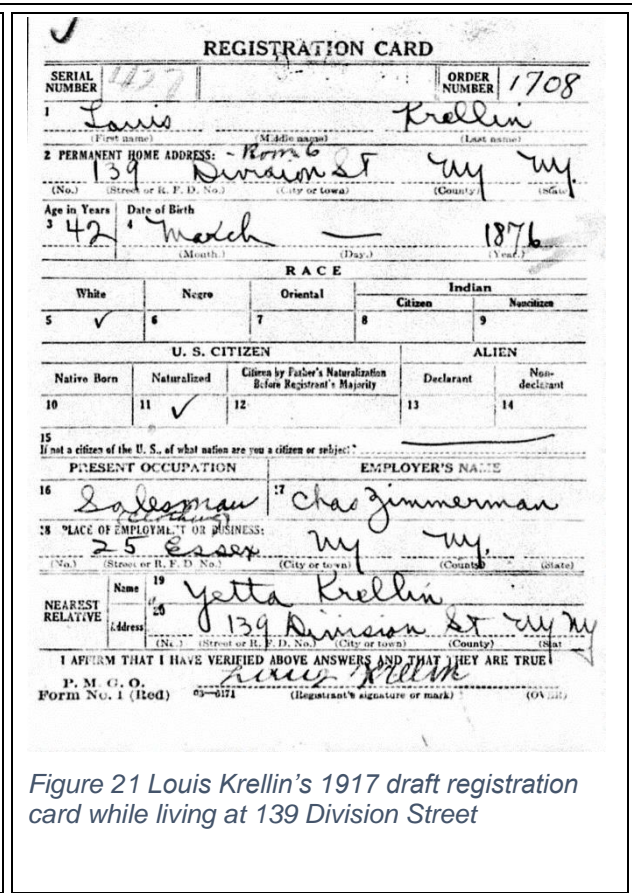 REGISTRATION CARD
SERIAL NUMBER 1427 ORDER NUMBER 1708
1 Louis Krellin
(First name) (Middle name) (Last name)
2 PERMANENT HOME ADDRESS: - Room 6
139 Division St Ny Ny.
(No.) (Street or R. F. D. No.) (City or town) (County) (State)
Age in Years Date of Birth
3 42 4 March — 1876
(Month.) (Day.) (Year.)
RACE
White Negro Oriental Indian
Citizen Noncitizen
5 ✓ 6 7 8 9
U. S. CITIZEN ALIEN
Native Born Naturalized Citizen by Father's Naturalization Before Registrant's Majority Declarant Non-declarant
10 11 ✓ 12 13 14
15
If not a citizen of the U. S., of what nation are you a citizen or subject?
PRESENT OCCUPATION EMPLOYER'S NAME
16 Salesman 17 Chas Zimmerman
(Clothing)
18 PLACE OF EMPLOYMENT OR BUSINESS:
25 Essex Ny Ny.
(No.) (Street or R. F. D. No.) (City or town) (County) (State)
NEAREST RELATIVE Name 19 Yetta Krellin
Address 20 139 Division St Ny Ny
(No.) (Street or R. F. D. No.) (City or town) (County) (State)
I AFFIRM THAT I HAVE VERIFIED ABOVE ANSWERS AND THAT THEY ARE TRUE
P. M. G. O.
Form No. 1 (Red) 03—6171 Louis Krellin
(Registrant's signature or mark) (OVER)
Figure 21 Louis Krellin's 1917 draft registration
card while living at 139 Division Street